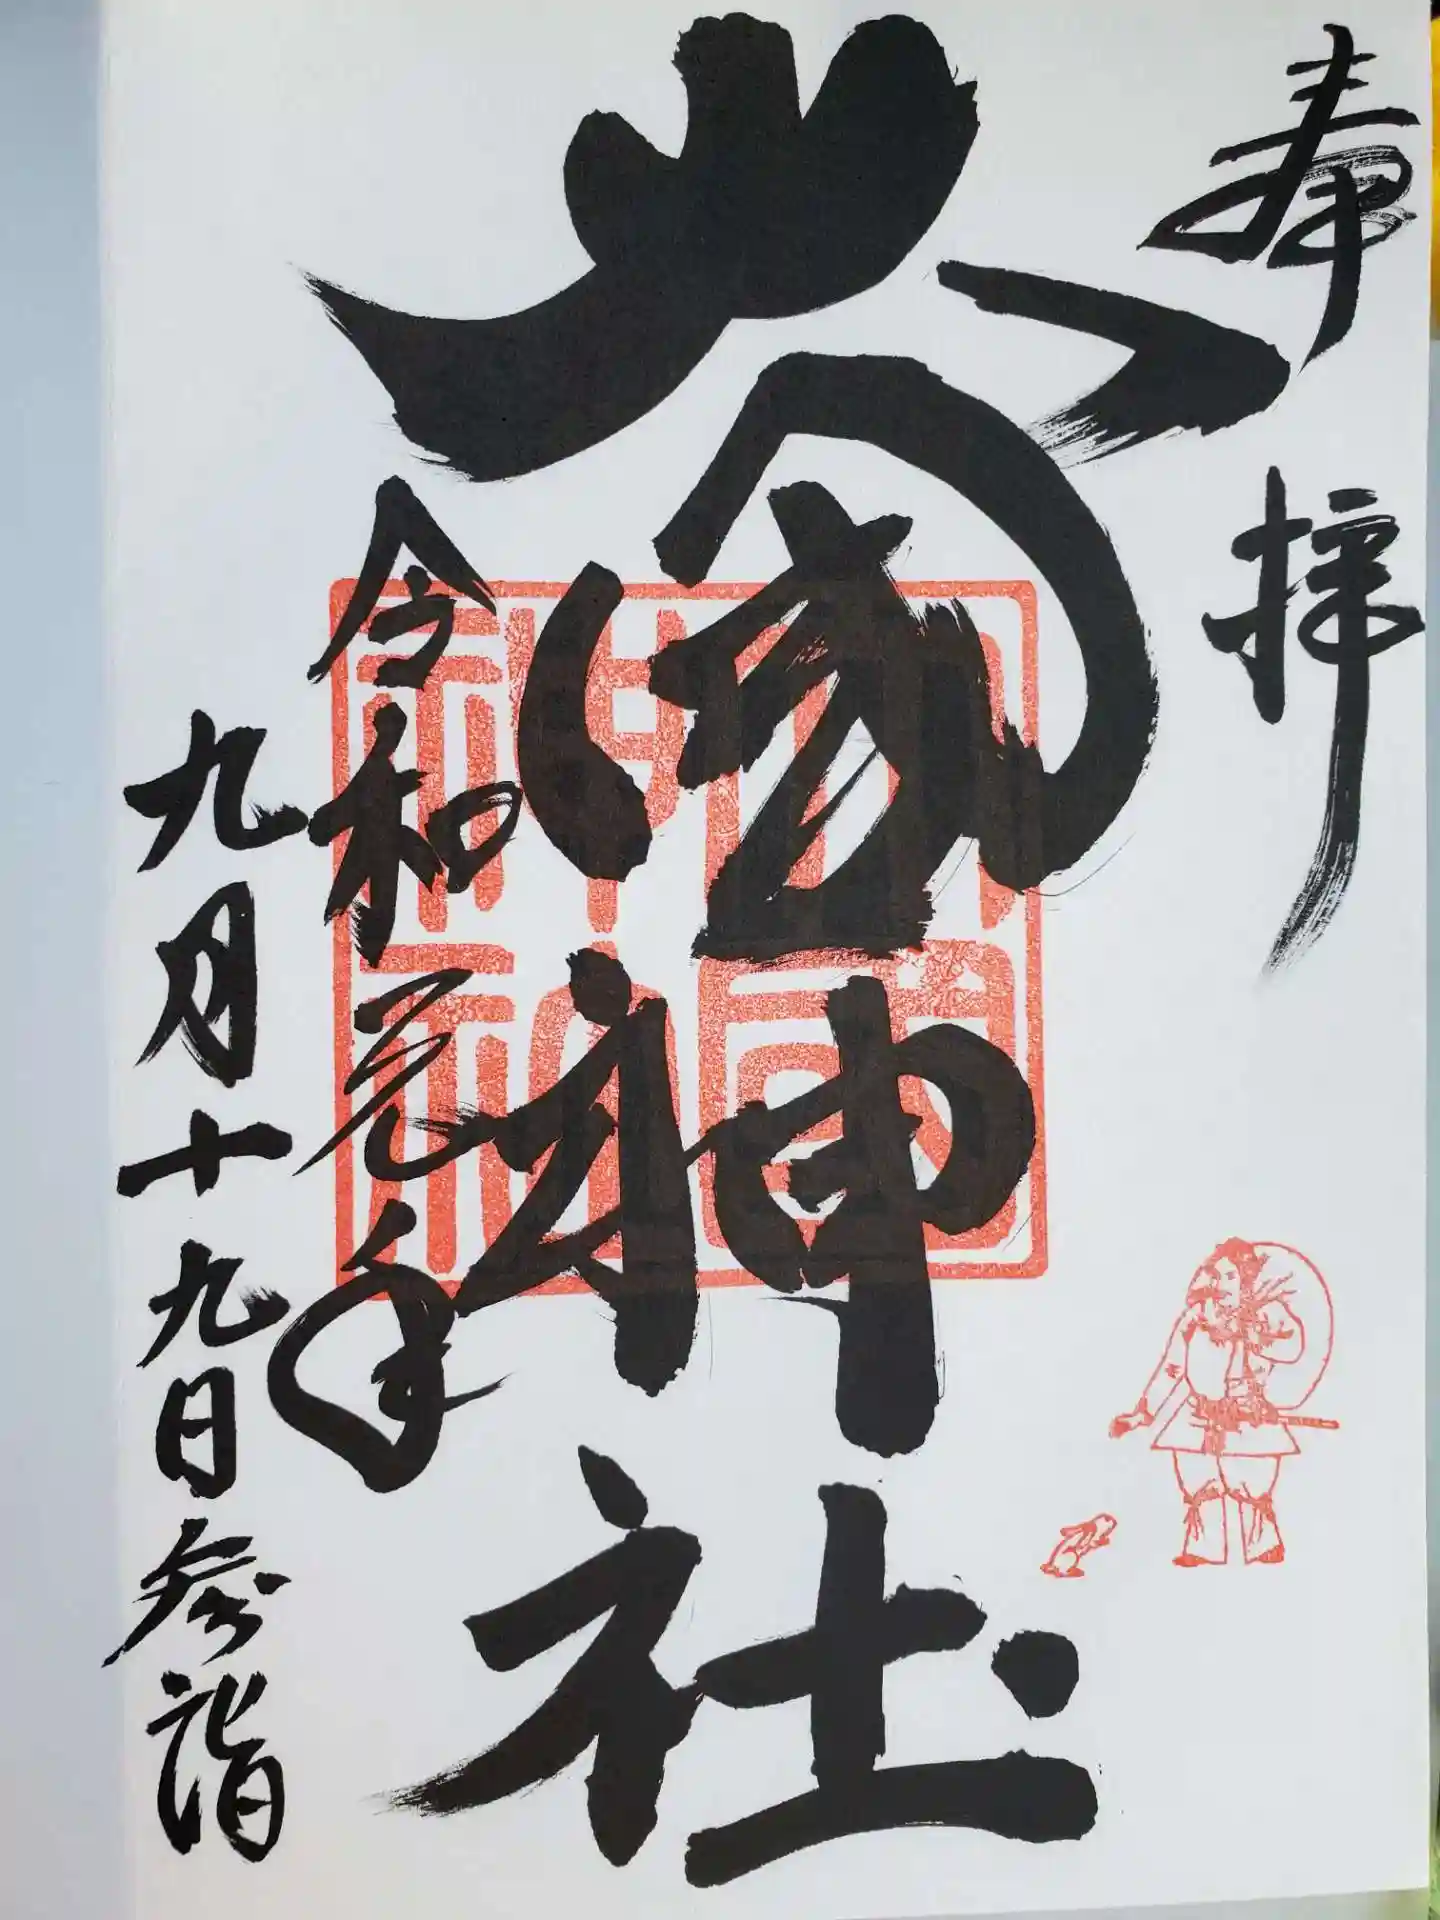 奉拝
大國神社
令和元年
九月十九日参詣